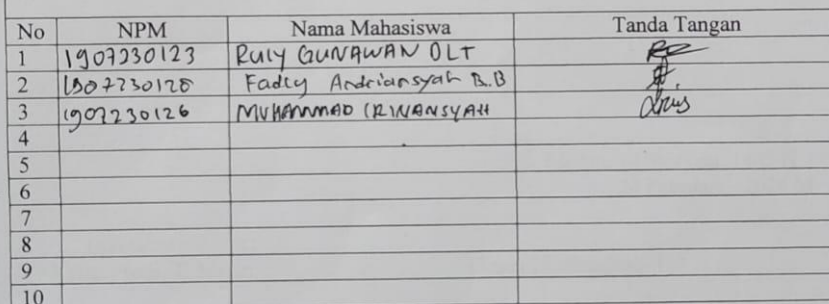 No NPM Nama Mahasiswa Tanda Tangan
1 1907230123 Ruly GUNAWAN DLT
2 1907230128 Fadly Andriansyah B.B
3 1907230126 MUHAMMAD IRWANSYAH
4
5
6
7
8
9
10